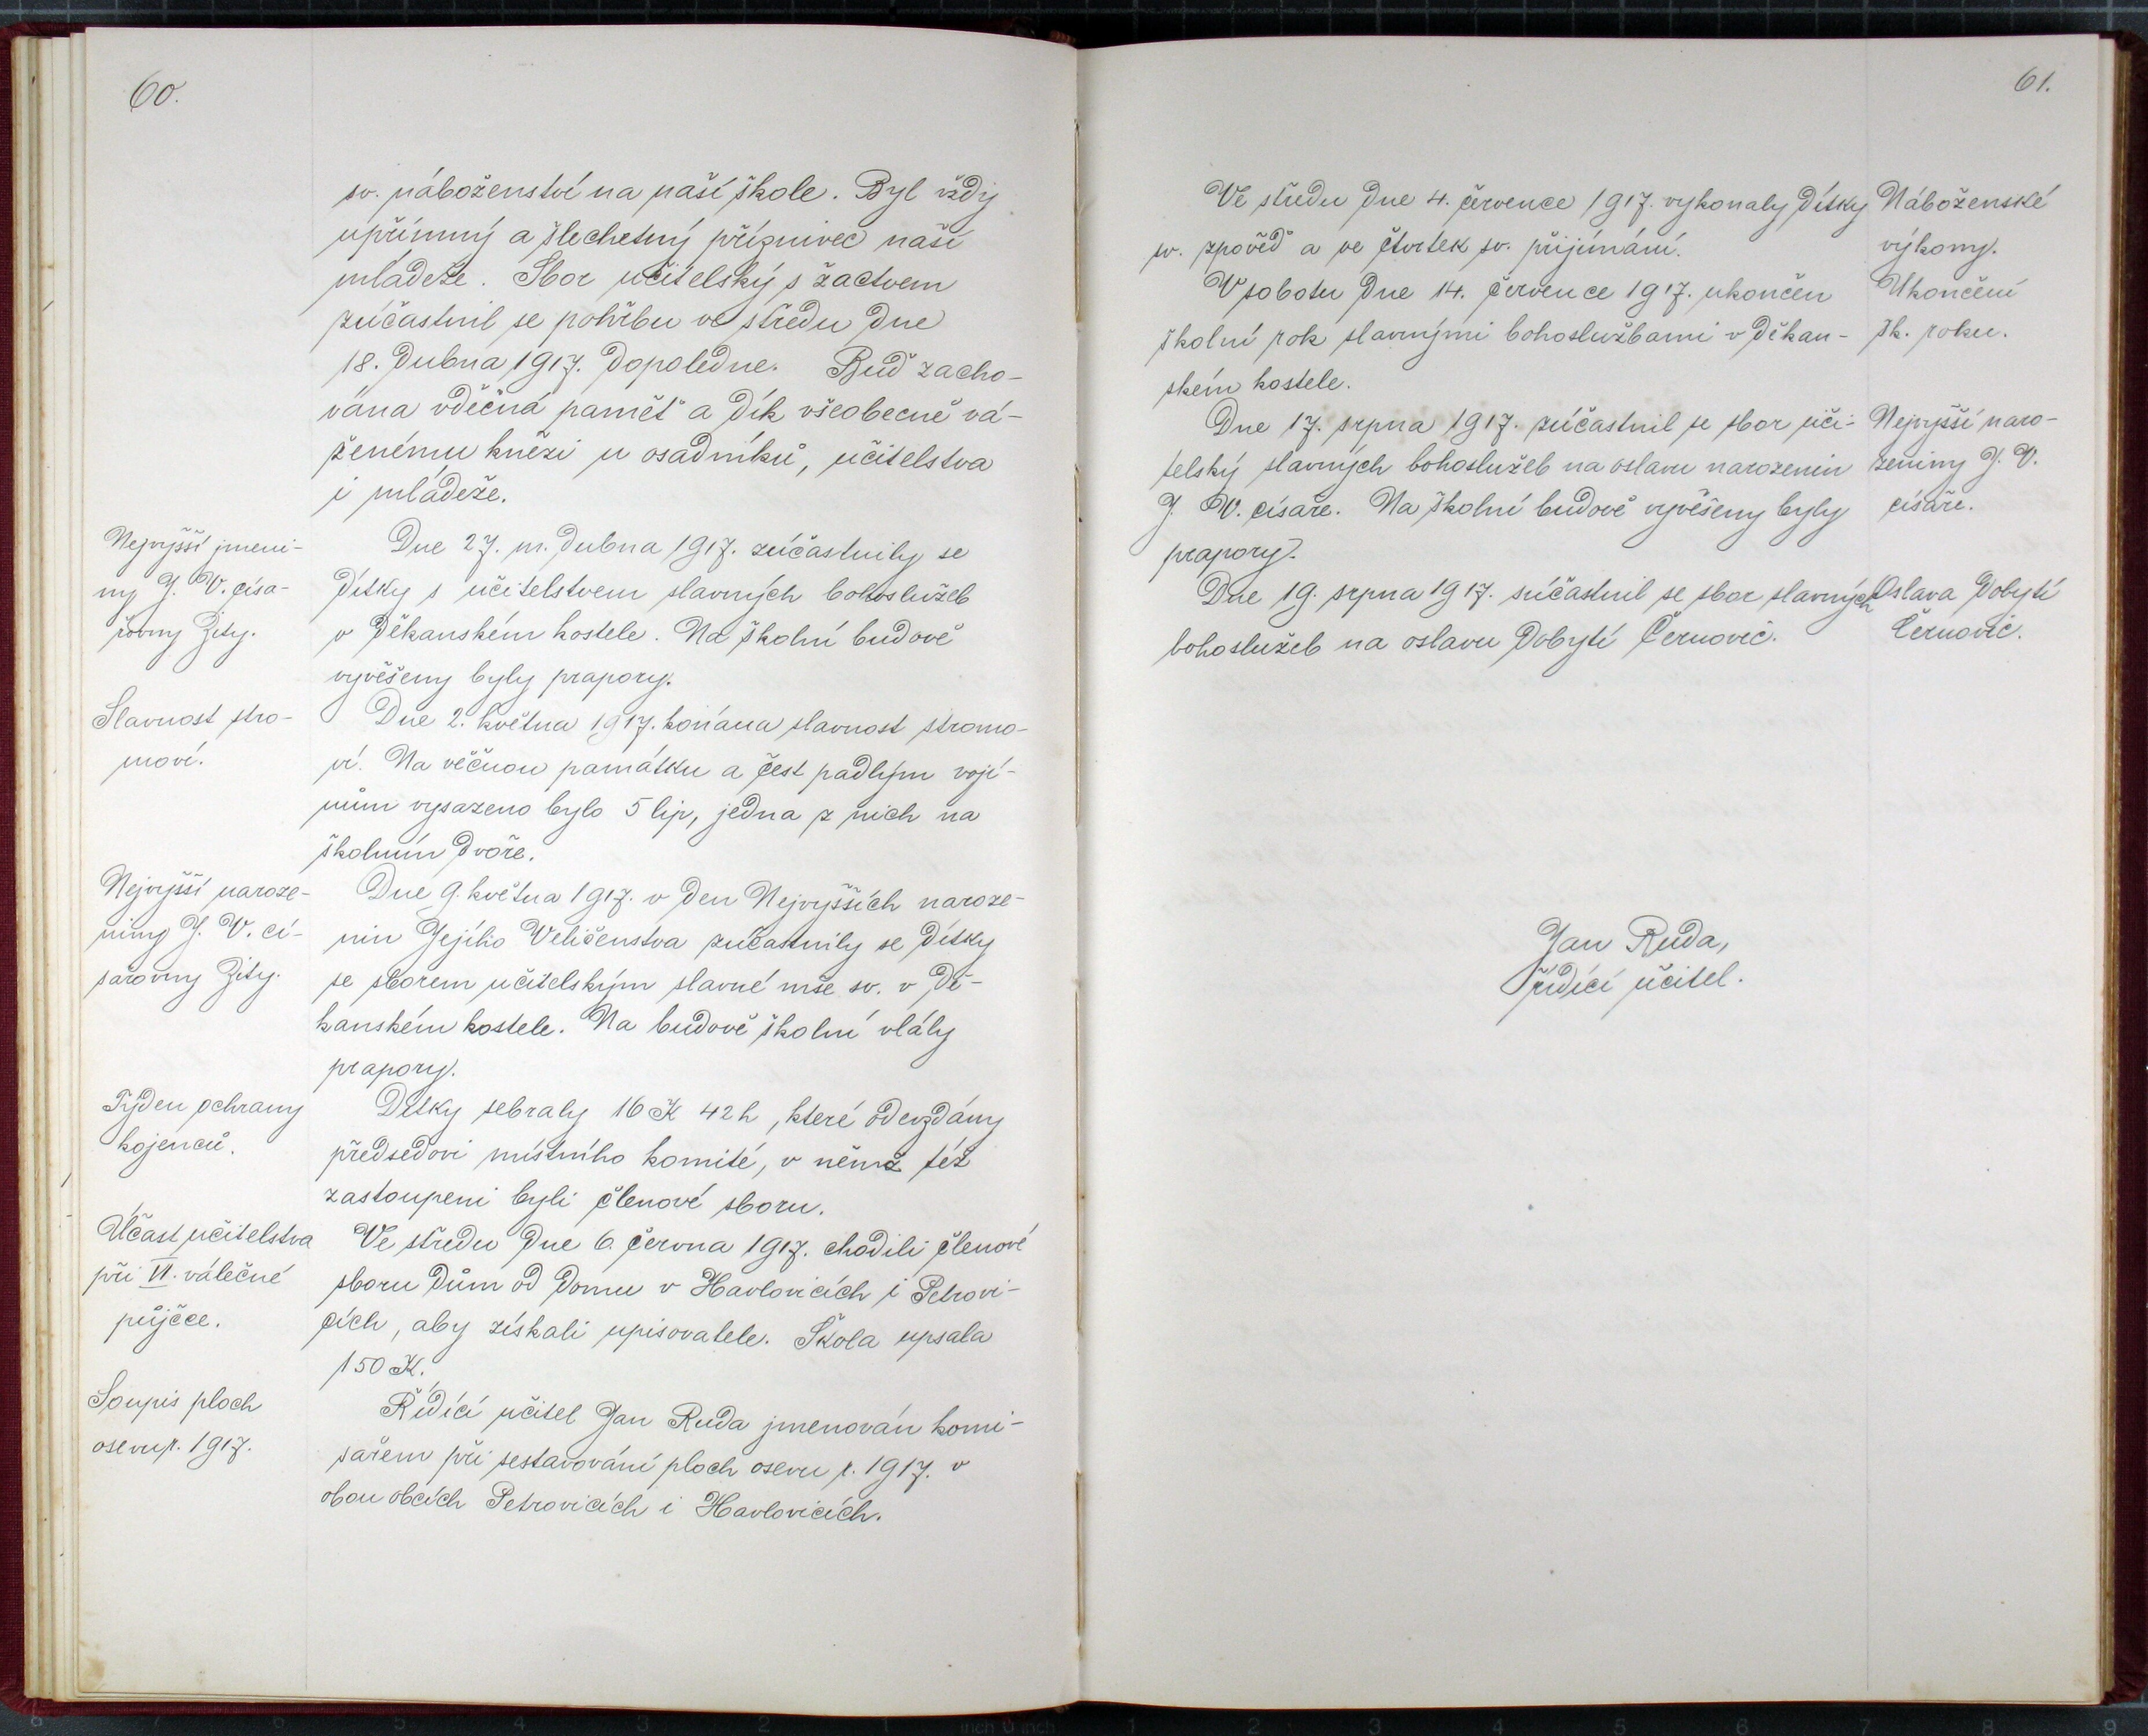 60.
sv. náboženství na naší škole. Byl vždy
upřímný a šlechetný příznivec naší
mládeže. Sbor učitelský s žactvem
zúčastnil se pohřbu ve středu dne
18. dubna 1917. dopoledne. Buď zacho-
vána vděčná paměť a dík všeobecně vá-
ženému knězi u osadníků, učitelstva
i mládeže.
Nejvyšší jmeni-
ny J. V. císa-
řovny Zity.
Dne 27. m. dubna 1917. zúčastnily se
dítky s učitelstvem slavných bohoslužeb
v děkanském kostele. Na školní budově
vyvěšeny byly prapory.
Slavnost stro-
moví.
Dne 2. května 1917. konána slavnost stromo-
ví. Na věčnou památku a čest padlým vojí-
nům vysazeno bylo 5 lip, jedna z nich na
školním dvoře.
Nejvyšší naroze-
niny J. V. cí-
sařovny Zity.
Dne 9. května 1917. v den Nejvyšších naroze-
nin Jejího Veličenstva zúčastnily se dítky
se sborem učitelským slavné mše sv. v dě-
kanském kostele. Na budově školní vlály
prapory.
Týden ochrany
kojenců.
Dítky sebraly 16 K 42 h, které odevzdány
předsedovi místního komité, v němž též
zastoupeni byli členové sboru.
Účast učitelstva
při VI. válečné
půjčce.
Ve středu dne 6. června 1917. chodili členové
sboru dům od domu v Havlovicích i Petrovi-
cích, aby získali upisovatele. Škola upsala
150 K.
Soupis ploch
osevu r. 1917.
Řídící učitel Jan Ruda jmenován komi-
sařem při sestavování ploch osevu r. 1917. v
obou obcích Petrovicích i Havlovicích.
61.
Ve středu dne 4. července 1917. vykonaly dítky
sv. zpověď a ve čtvrtek sv. přijímání.
Náboženské
výkony.
V sobotu dne 14. července 1917. ukončen
školní rok slavnými bohoslužbami v děkan-
ském kostele.
Ukončení
šk. roku.
Dne 17. srpna 1917. zúčastnil se sbor uči-
telský slavných bohoslužeb na oslavu narozenin
J. V. císaře. Na školní budově vyvěšeny byly
prapory.
Nejvyšší naro-
zeniny J. V.
císaře.
Dne 19. srpna 1917. súčastnil se sbor slavných
bohoslužeb na oslavu dobytí Černovic.
Oslava dobytí
Černovic.
Jan Ruda,
řídící učitel.